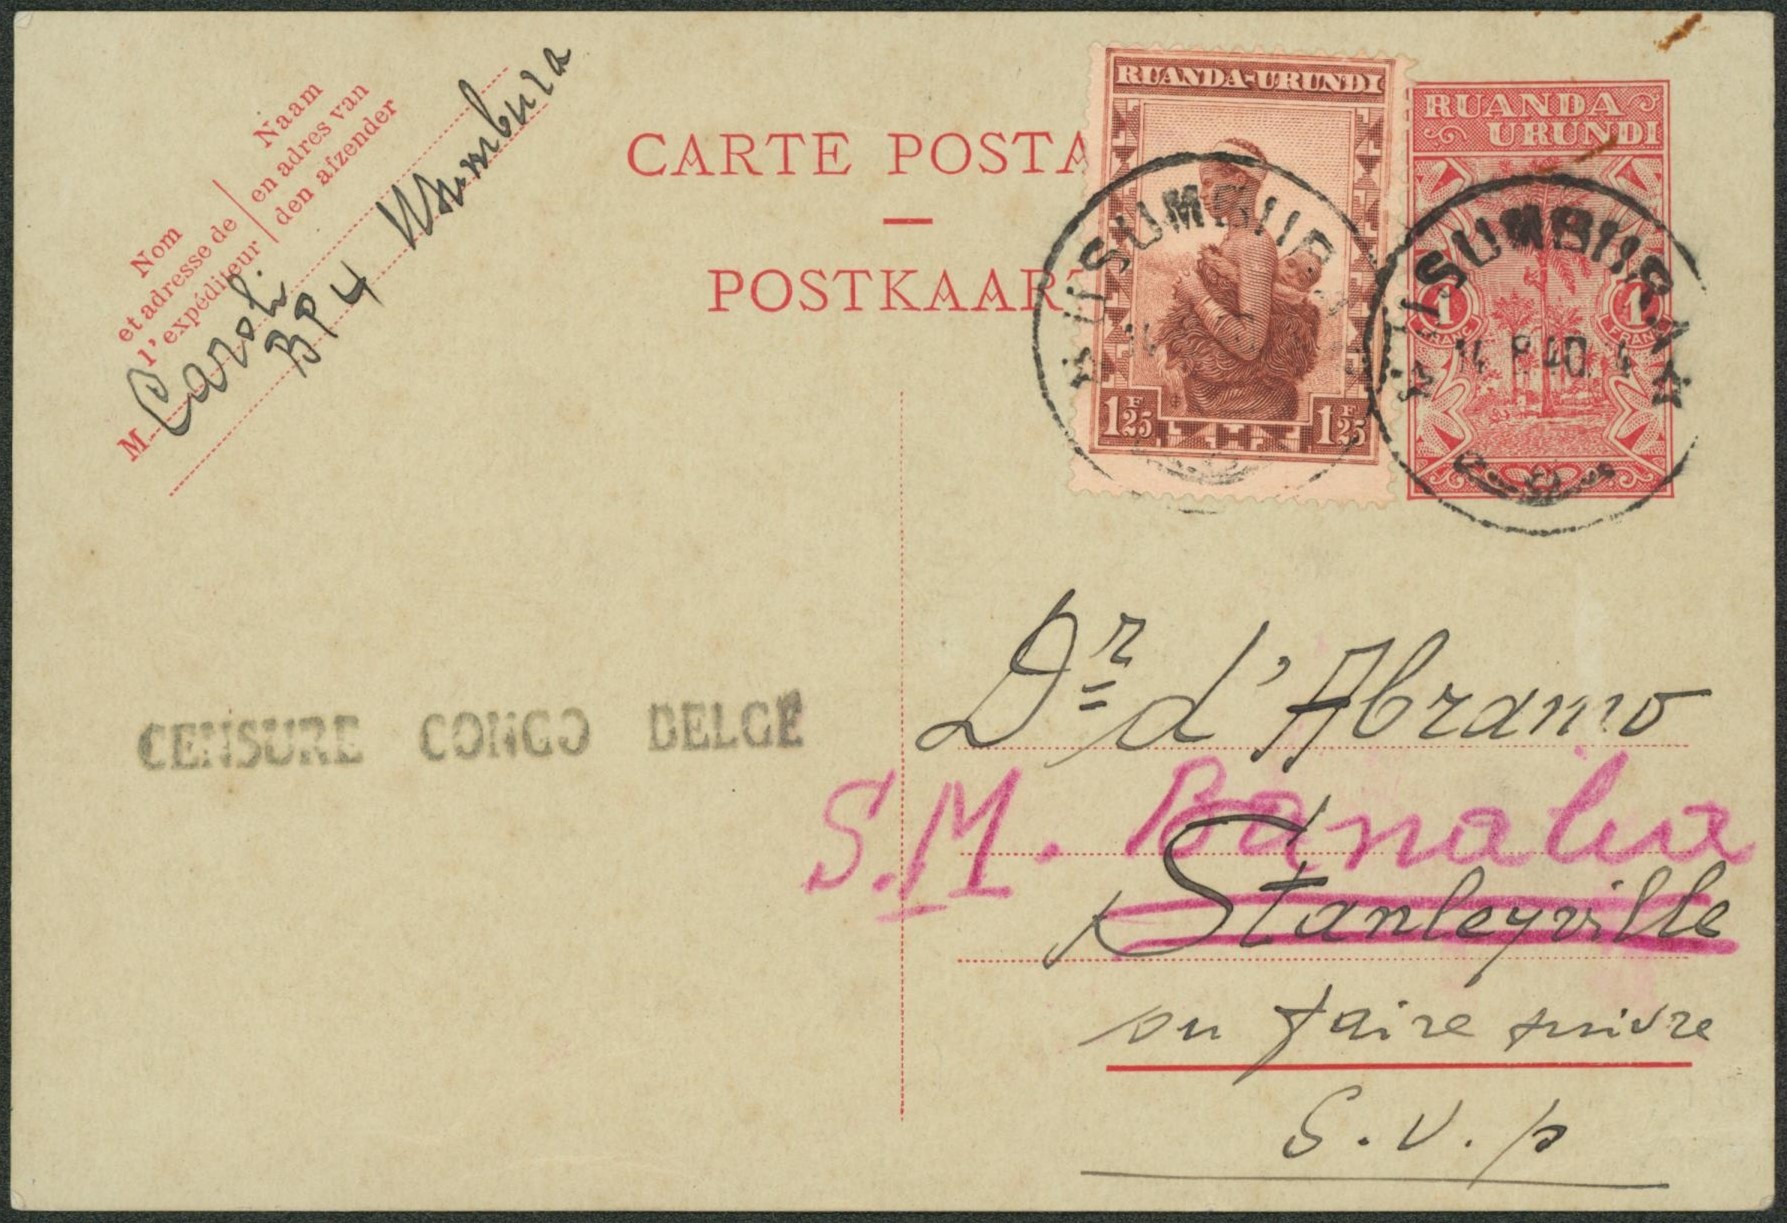 Nom
et adresse de
l'expéditeur
Naam
en adres van
den afzender
M. Caroli
BP 4 Usumbura
CARTE POSTA
POSTKAAR
RUANDA-URUNDI
1F25 1F25
RUANDA
URUNDI
1 1
USUMBUR
USUMBURA
14 8 40 4
CENSURE CONGO BELGE
Dr d'Abramo
S.M. Banalia
Stanleyville
ou faire suivre
S.V.p